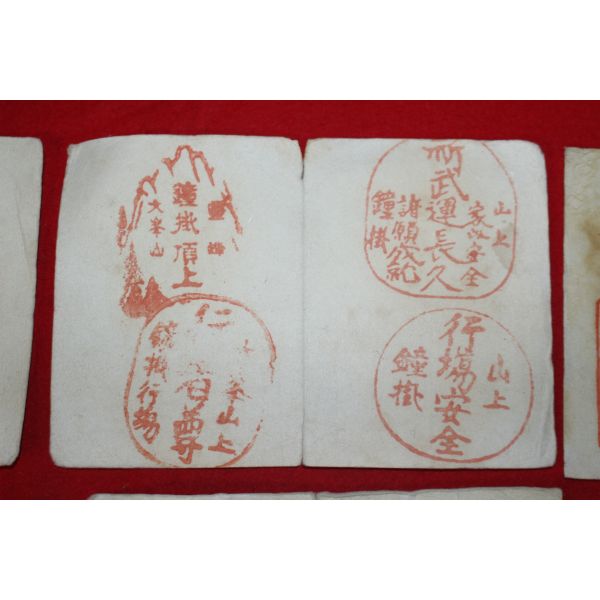 山上
家内安全
祈武運長久
諸願成就
鐘掛
山上
行場安全
鐘掛
鐘掛頂上
大峯山
山上
仁
尊
鐘掛行場